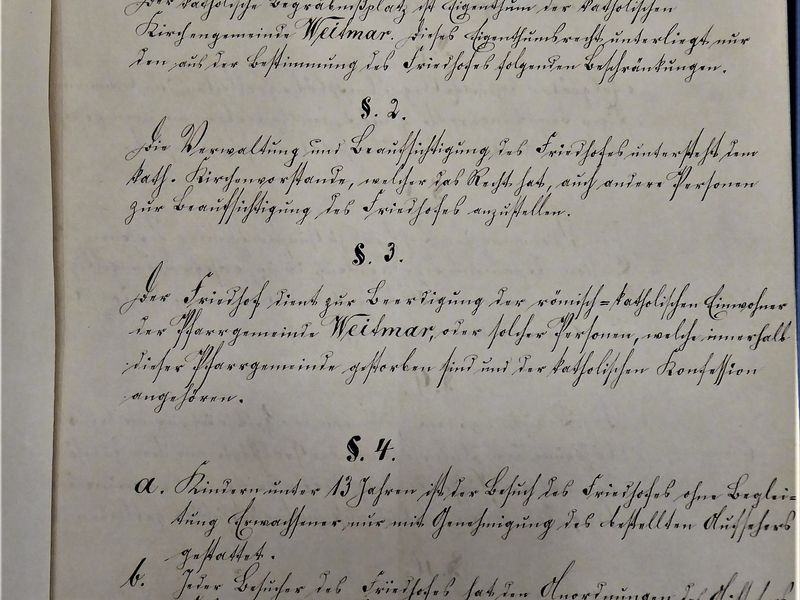 Der katholische Begräbnißplatz ist Eigenthum der katholischen
Kirchengemeinde Weitmar. Dieses Eigenthumsrecht unterliegt nur
den aus der Bestimmung des Friedhofes folgenden Beschränkungen.
§. 2.
Die Verwaltung und Beaufsichtigung des Friedhofes untersteht dem
kath. Kirchenvorstande, welcher das Recht hat, auch andere Personen
zur Beaufsichtigung des Friedhofes anzustellen.
§. 3.
Der Friedhof dient zur Beerdigung der römisch=katholischen Einwohner
der Pfarrgemeinde Weitmar, oder solcher Personen, welche innerhalb
dieser Pfarrgemeinde gestorben sind und der katholischen Konfession
angehören.
§. 4.
a. Kindern unter 13 Jahren ist der Besuch des Friedhofes ohne Beglei-
tung Erwachsener nur mit Genehmigung des bestellten Aufsehers
gestattet.
b. Jeder Besucher des Friedhofes hat den Anordnungen des